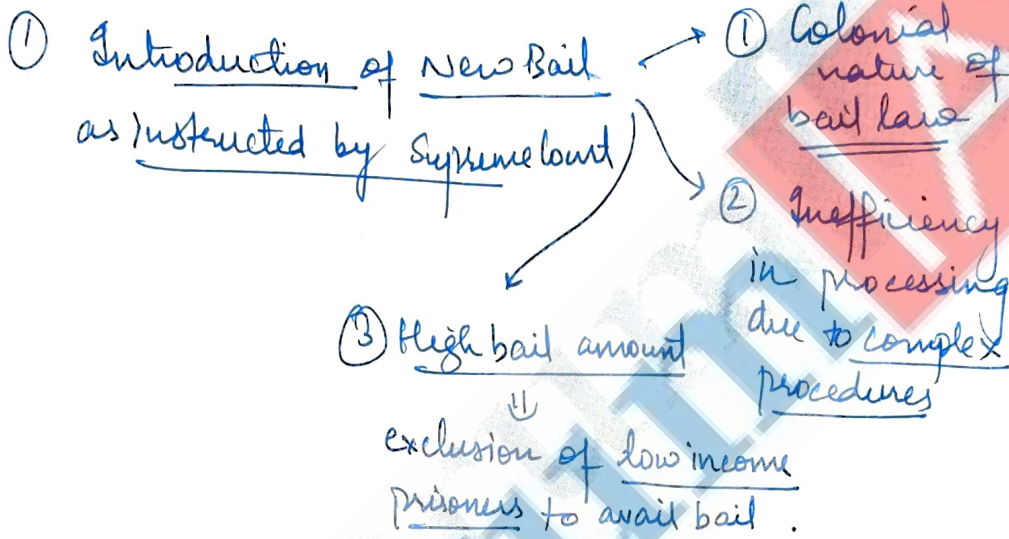 ① Introduction of New Bail
as instructed by Supreme Court
① Colonial
nature of
bail law
② Inefficiency
in processing
due to complex
procedures
③ High bail amount
⇓
exclusion of low income
prisoners to avail bail .